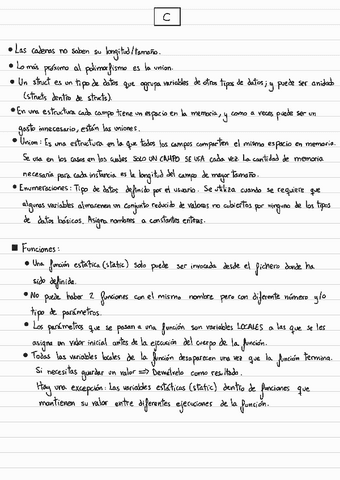 C
• Las cadenas no saben su longitud/tamaño.
• Lo más próximo al polimorfismo es la union.
• Un struct es un tipo de datos que agrupa variables de otros tipos de datos; y puede ser anidado
(structs dentro de structs).
• En una estructura cada campo tiene un espacio en la memoria, y como a veces puede ser un
gasto innecesario, están las uniones.
• Union: Es una estructura en la que todos los campos comparten el mismo espacio en memoria.
Se usa en los casos en los cuales SOLO UN CAMPO SE USA cada vez. La cantidad de memoria
necesaria para cada instancia es la longitud del campo de mayor tamaño.
• Enumeraciones: Tipo de datos definido por el usuario. Se utiliza cuando se requiere que
algunas variables almacenen un conjunto reducido de valores no cubiertos por ninguno de los tipos
de datos básicos. Asigna nombres a constantes enteras.
■ Funciones:
• Una función estática (static) solo puede ser invocada desde el fichero donde ha
sido definida.
• No puede haber 2 funciones con el mismo nombre pero con diferente número y/o
tipo de parámetros.
• Los parámetros que se pasan a una función son variables LOCALES a las que se les
asigna un valor inicial antes de la ejecución del cuerpo de la función.
• Todas las variables locales de la función desaparecen una vez que la función termina.
Si necesitas guardar un valor => Devuélvelo como resultado.
Hay una excepción: Las variables estáticas (static) dentro de funciones que
mantienen su valor entre diferentes ejecuciones de la función.